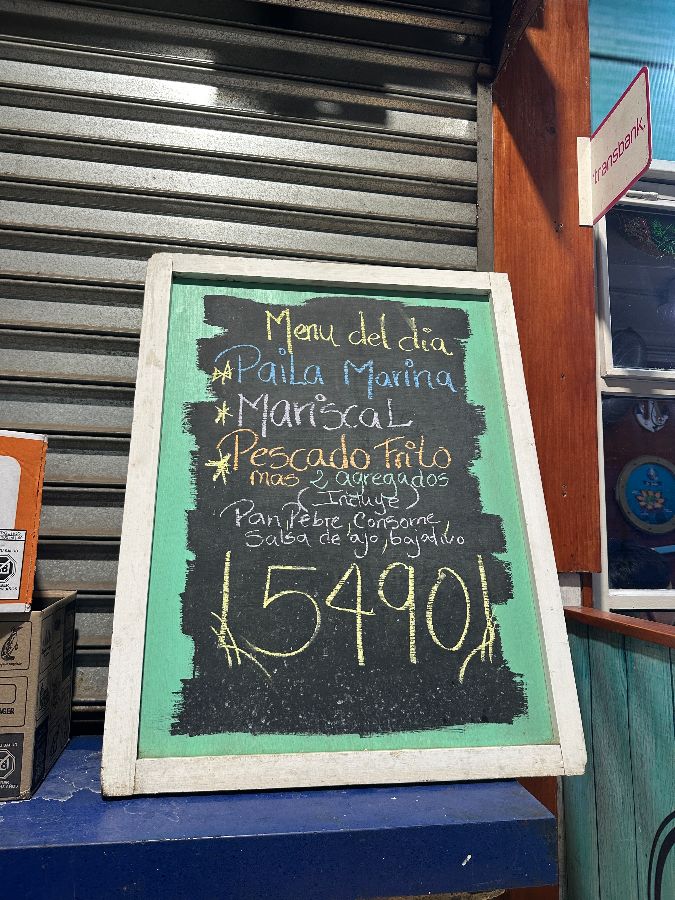 transbank.
Menu del dia
Paila Marina
Mariscal
Pescado Frito
mas 2 agregados
(Incluye)
Pan, Pebre, Consome,
Salsa de ajo, bajativo
5490